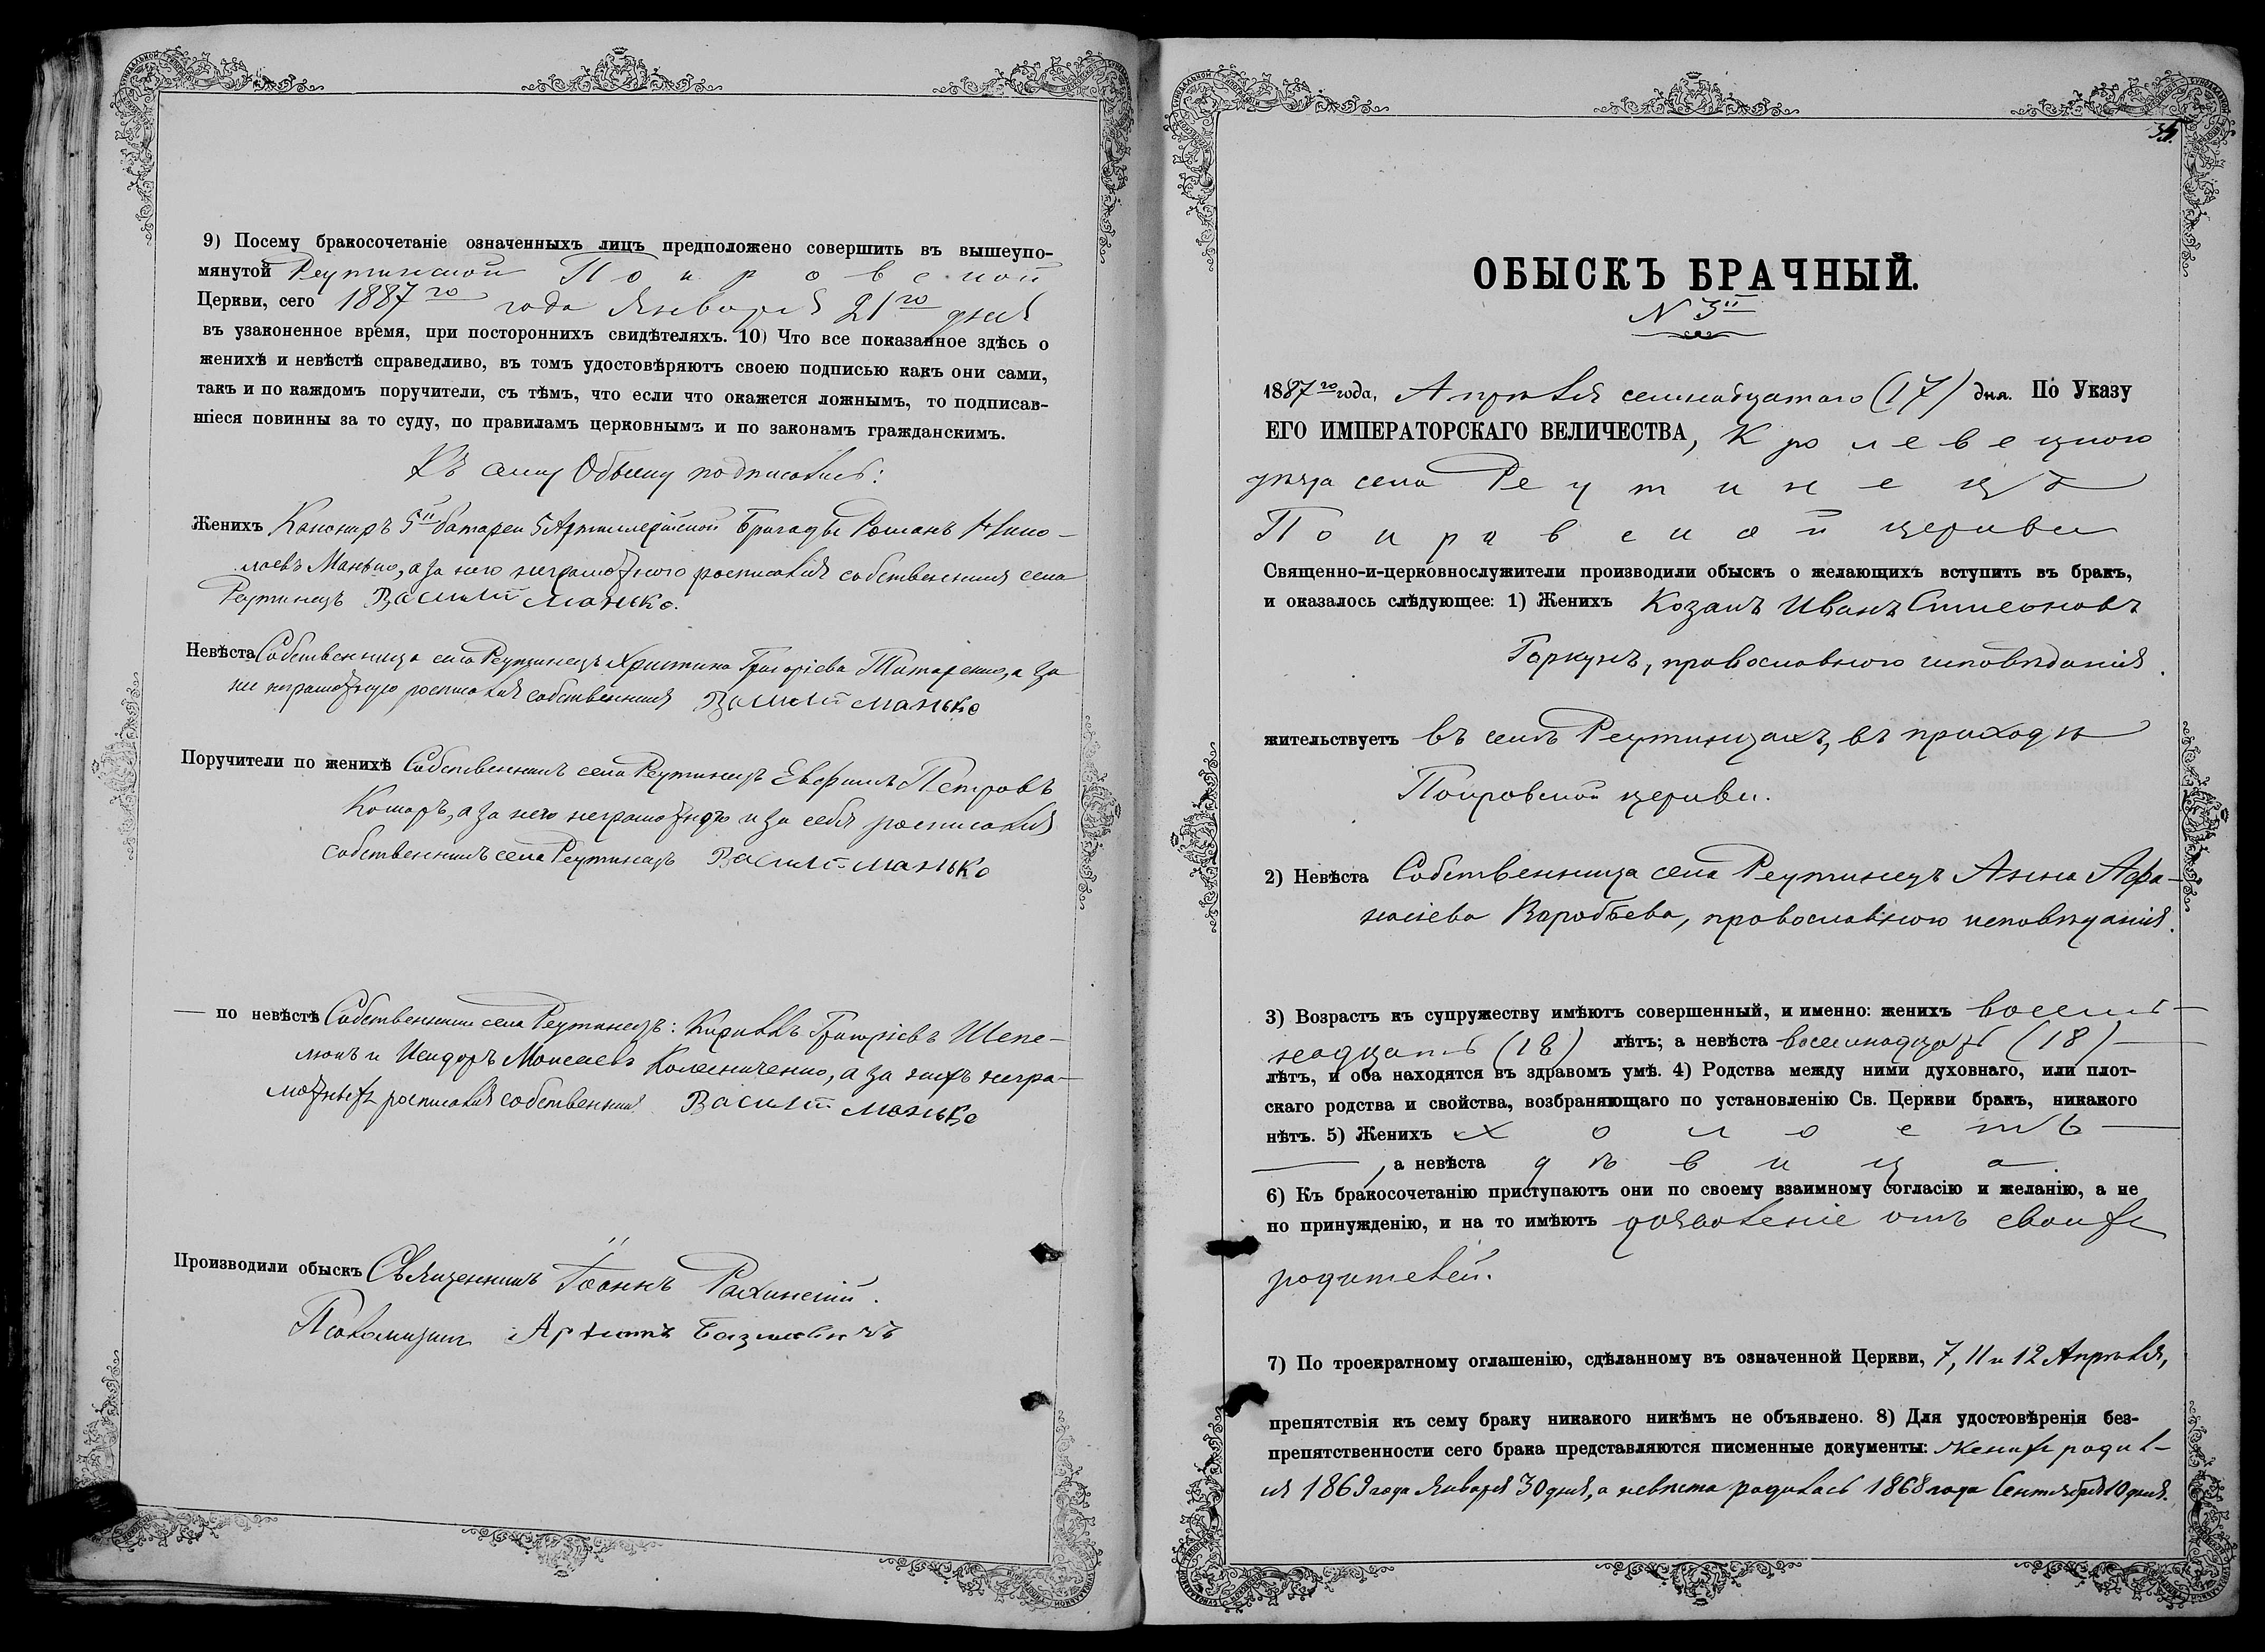 9) Посему бракосочетаніе означенныхъ лицъ предположено совершить въ вышеупо-
мянутой Реутинской Покровской
Церкви, сего 1887го года Января 21го дня
въ узаконенное время, при постороннихъ свидѣтеляхъ. 10) Что все показанное здѣсь о
женихѣ и невѣстѣ справедливо, въ томъ удостовѣряютъ своею подписью какъ они сами,
такъ и по каждомъ поручители, съ тѣмъ, что если что окажется ложнымъ, то подписав-
шіеся повинны за то суду, по правиламъ церковнымъ и по законамъ гражданскимъ.
Къ сему Обыску подписались:
Женихъ Канониръ 5й батареи 5 Артиллерійской Бригады Романъ Нико-
лаевъ Манько, а за него неграмотного росписался собственникъ села
Реутинецъ Василій Манько.
Невѣста Собственница села Реутинецъ Христина Григоріева Титаренко, а за
ни неграмотную росписался собственникъ Василій Манько
Поручители по женихѣ Собственникъ села Реутинецъ Евфимъ Петровъ
Комаръ, а за него неграмотного и за себя росписался
собственникъ села Реутинецъ Василій Манько
— по невѣстѣ Собственники села Реутинецъ: Кириллъ Григоріевъ Шепе-
люкъ и Исидоръ Моисеевъ Колесниченко, а за нихъ негра-
мотныхъ росписался собственникъ Василій Манько
Производили обыскъ Священникъ Іоаннъ Рахинскій.
Псаломщикъ Базилевичъ
35.
ОБЫСКЪ БРАЧНЫЙ.
N 5й
1887го года, Апрѣля семнадцатаго (17) дня. По Указу
ЕГО ИМПЕРАТОРСКАГО ВЕЛИЧЕСТВА, Кролевецкого
уѣзда села Реутинецъ
Покравской церкви
Священно-и-церковнослужители производили обыскъ о желающихъ вступить въ бракъ,
и оказалось слѣдующее: 1) Женихъ Козакъ Иванъ Симеоновъ
Гаркунъ, православного исповѣданія.
жительствуетъ въ селѣ Реутинцахъ, въ приходѣ
Покровской церкви.
2) Невѣста Собственница села Реутинецъ Анна Афа-
насіева Воробьева, православного исповѣданія.
3) Возрастъ къ супружеству имѣютъ совершенный, и именно: женихъ восем-
надцать (18) лѣтъ; а невѣста восемнадцать (18)
лѣтъ, и оба находятся въ здравомъ умѣ. 4) Родства между ними духовнаго, или плот-
скаго родства и свойства, возбраняющаго по установленію Св. Церкви бракъ, никакого
нѣтъ. 5) Женихъ холостъ
, а невѣста дѣвица.
6) Къ бракосочетанію приступаютъ они по своему взаимному согласію и желанію, а не
по принужденію, и на то имѣютъ дозволеніе отъ своихъ
родителей.
7) По троекратному оглашенію, сдѣланному въ означенной Церкви, 7, 11 и 12 Апрѣля,
препятствія къ сему браку никакого никѣмъ не объявлено. 8) Для удостовѣренія без-
препятственности сего брака представляются писменные документы: женихъ родил-
ся 1869 года Января 30 дня, а невѣста родилась 1868 года Сентября 10 дня.